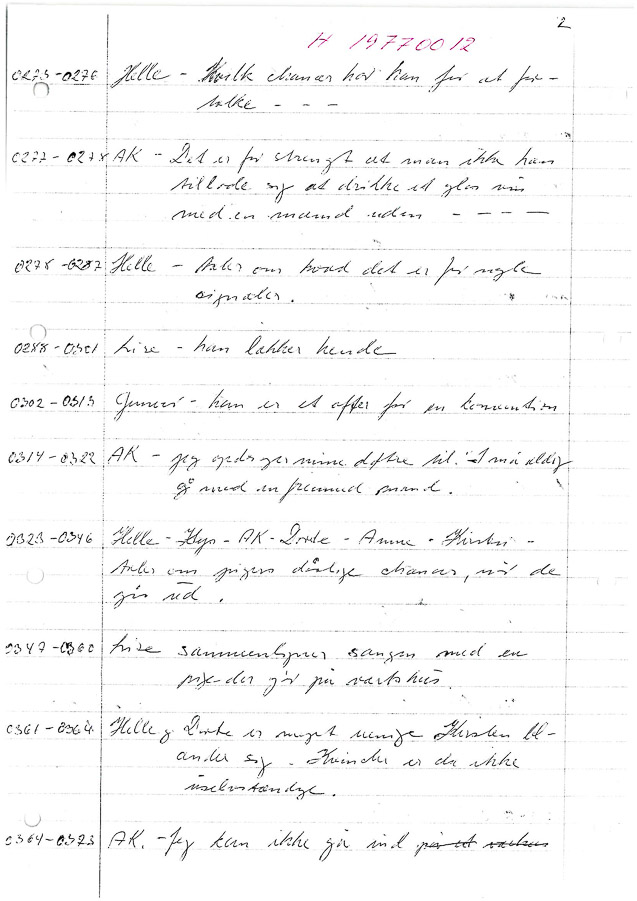 2
H 19770012
0273-0276 Helle - Hvilk chancer har han for at for-
tolke - - -
0277-0278 AK - Det er for strengt at man ikke kan
tillade sig at drikke et glas vin
med en mand uden - - - -
0278-0287 Helle - taler om hvad det er for nogle
signaler.
0288-0301 Lise - han lokker hende
0302-0313 - han er et offer for en konvention
0314-0322 AK - jeg opdrager mine døtre til: I må aldrig
gå med en fremmed mand.
0323-0346 Helle - - AK - Dorte - Anne - Kirsten -
taler om pigers dårlige chancer, når de
går ud.
0347-0360 Lise sammenligner sangen med en
pige der går på værtshus.
0361-0364 Helle g Dorte er meget uenige Kirsten bl-
ander sig. Kvinder er da ikke
uselvstændige.
0364-0373 AK. - Jeg kan ikke gå ind på et værtshus